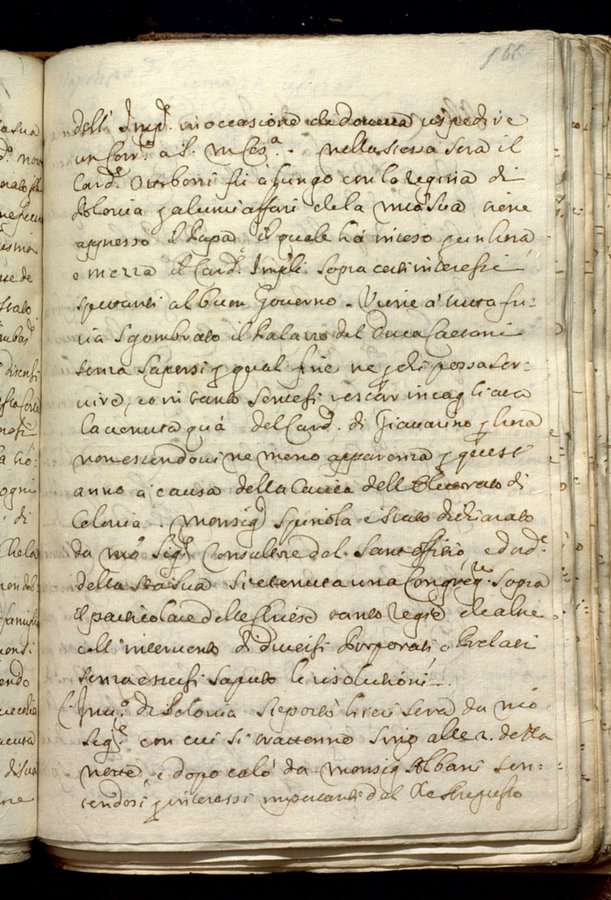 166
dell' Imp.re in occasione che doveva ispedire
un Corr.e a S. M. Ces.a. nella stessa sera il
Card.e Barberini fù a lungo con la Regina di
Polonia p alcuni affari che la med.a Sua tiene
appresso il Papa il quale há inteso p un'hora
e mezza il Card.e Imp.li sopra certi interessi
spettanti al buon Governo. Viene à tutta fu-
ria sgombrato il Palazzo del Duca Caetani
senza sapersi p qual fine ne p chi possa ser-
vire, con tanto sentesi restar incagliata
la venuta quà del Card.e di Giavarino p hora
non essendovi ne meno apparenza p quest'
anno à causa della Carica dell'Elettorato di
Colonia. Monsig.r Spinola è stato dichiarato
da Nro Sig.re Consultore del Sant'offitio, ed ad.
della Stã Sua si è tenuta una Congreg.ne sopra
il particolare delle Chiese tanto regie che altre
coll'intervento di diversi Porporati, e Prelati
senza essersi saputo le risolutioni.
L'Inv.o di Polonia si portò hieri sera da Nro
Sig.re con cui si trattenne sino alle 2. della
notte, e dopo calò da Monsig.r Albani sen-
tendosi p interessi importanti del Rè Augusto